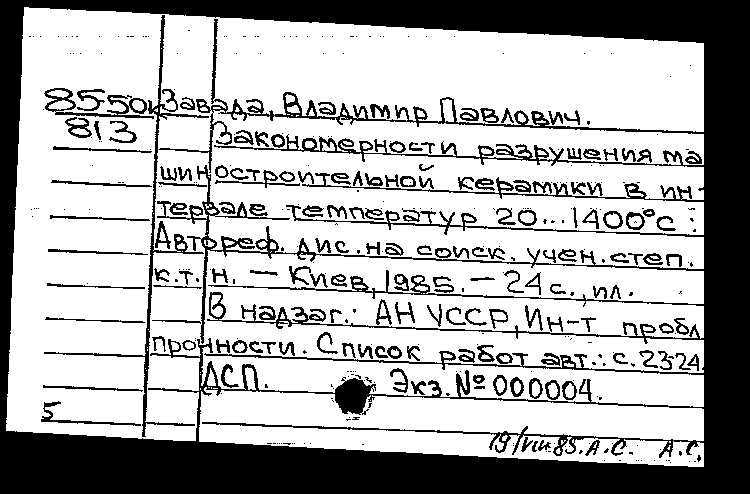 85-50к Завада, Владимир Павлович.
813 Закономерности разрушения ма
шиностроительной керамики в ин-
тервале температур 20...1400°С :
Автореф. дис. на соиск. учен. степ.
к.т.н. — Киев, 1985. — 24 с., ил.
В надзаг.: АН УССР, Ин-т пробл.
прочности. Список работ авт.: с. 23-24.
ДСП. Экз. № 000004.
5
19/VIII.85. А.С. А.С.